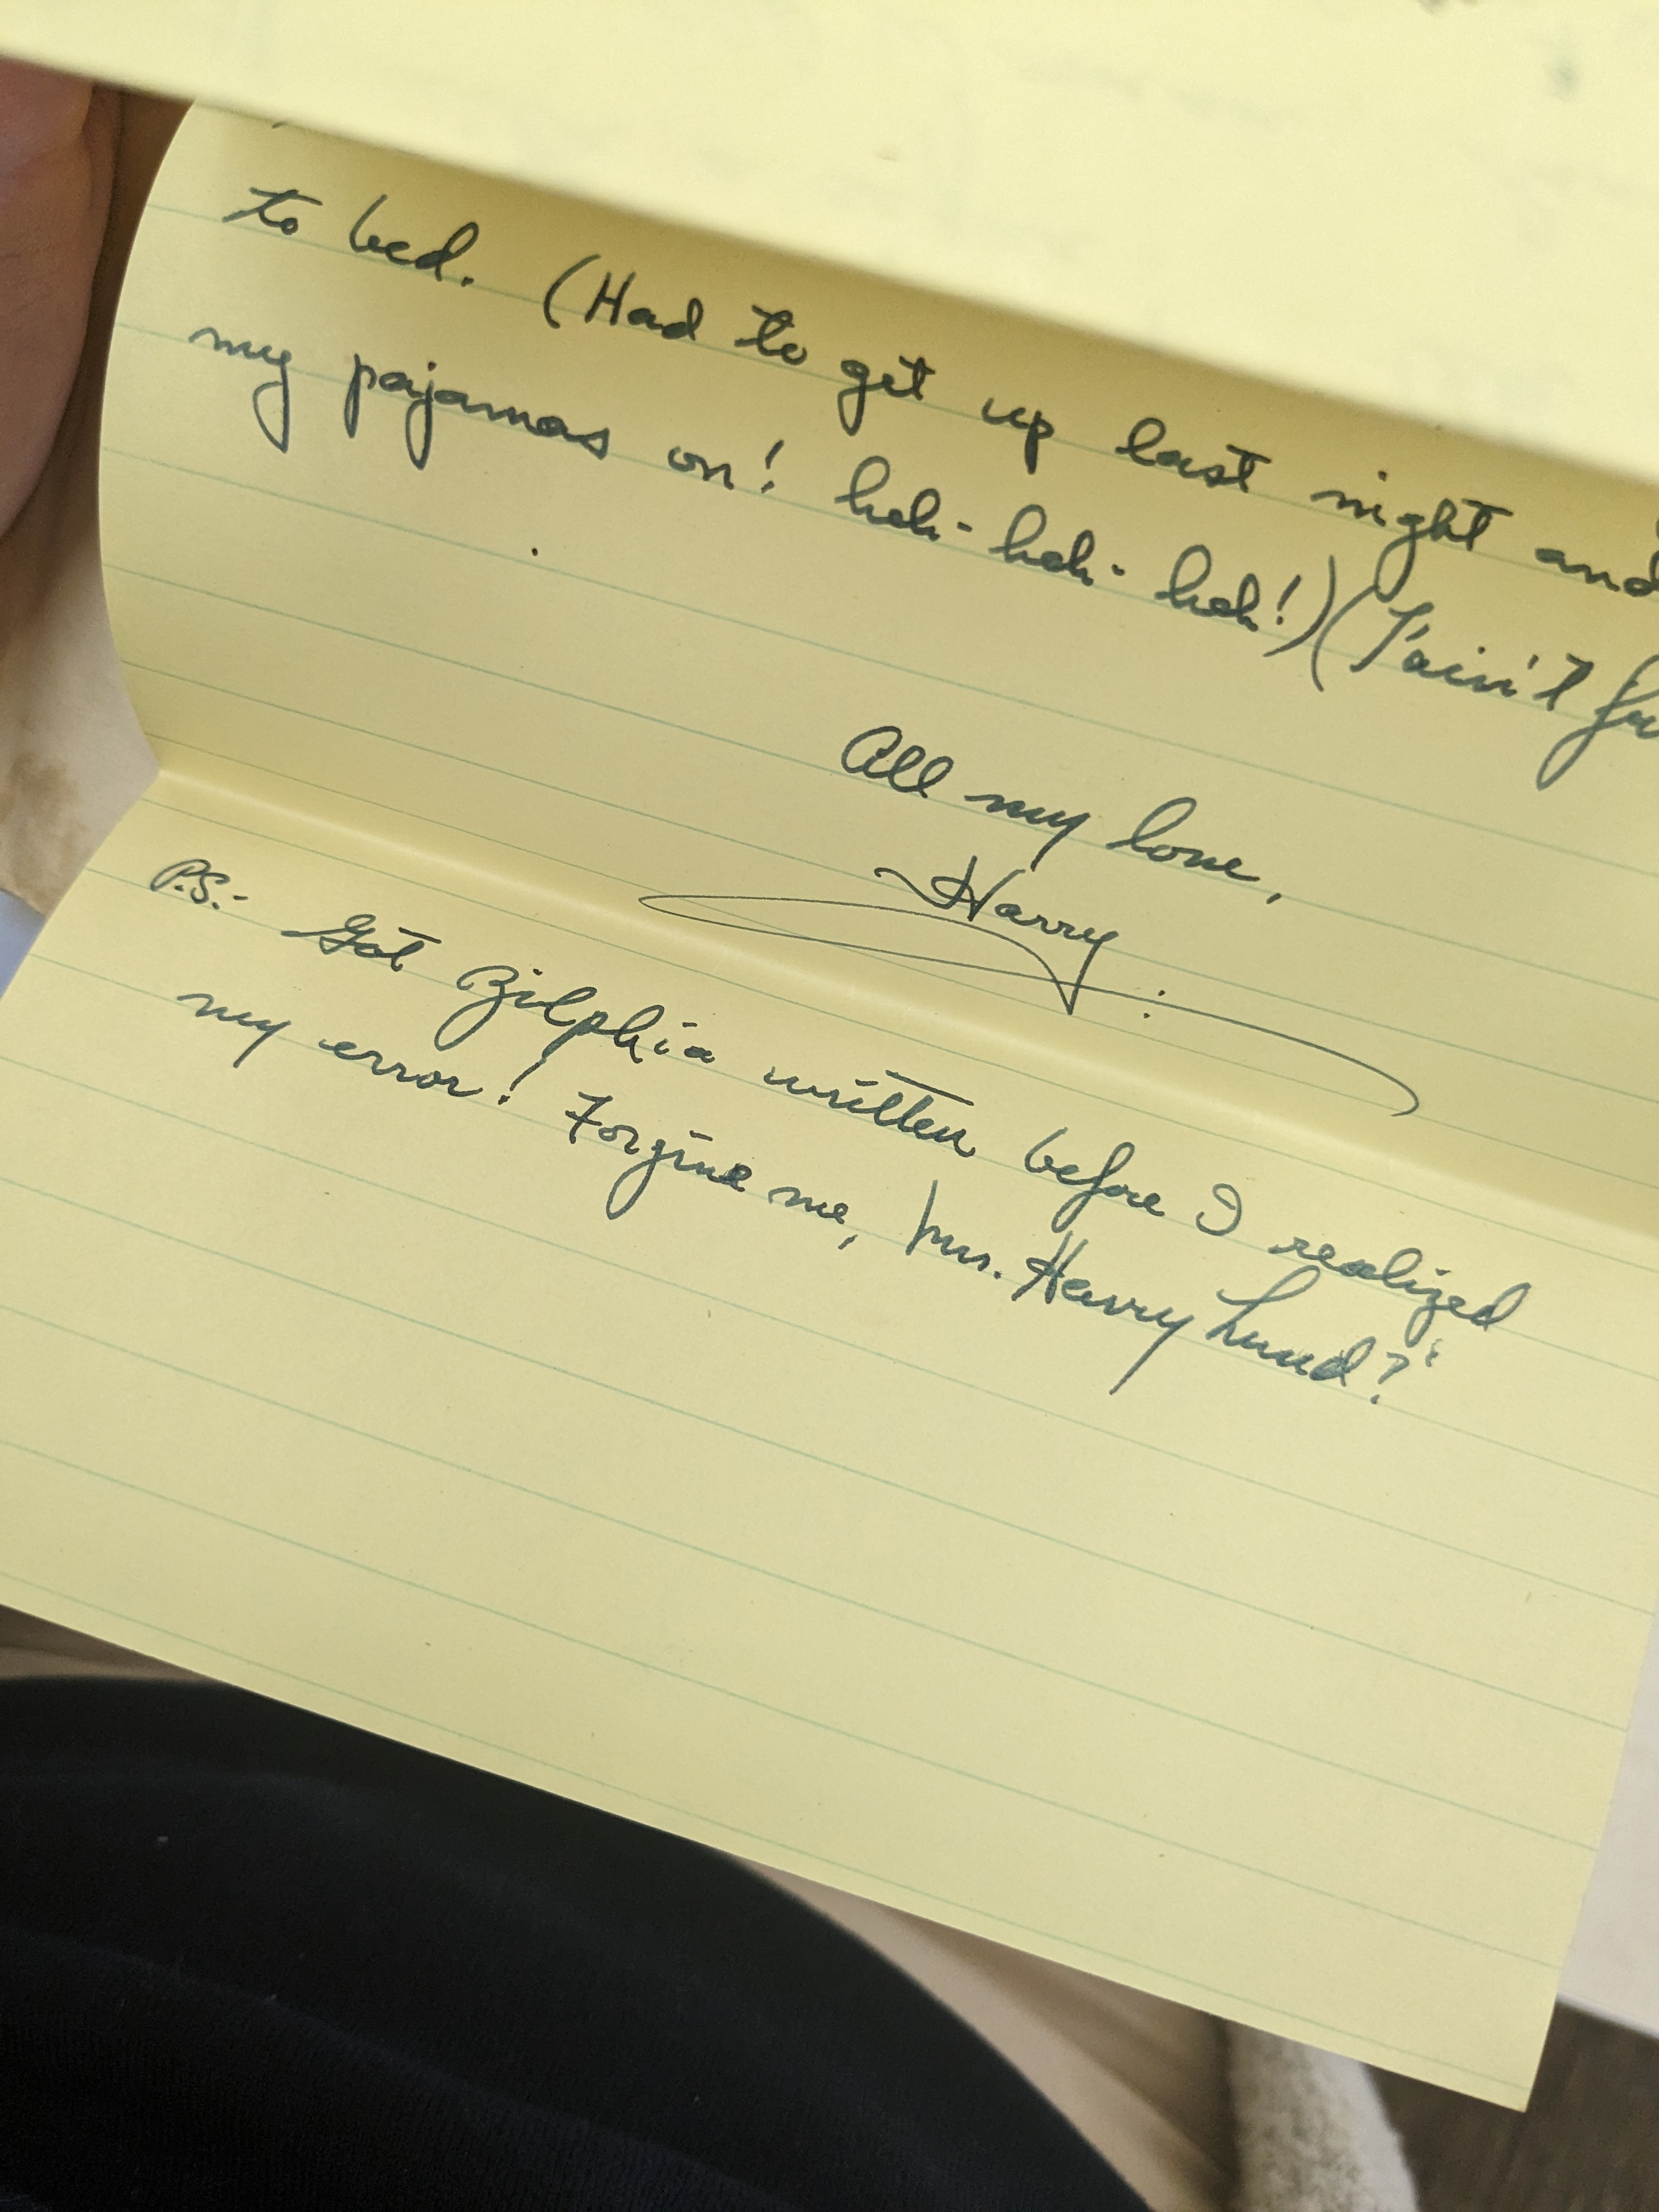 to bed. (Had to get up last night and
my pajamas on! heh-heh-heh!) (T'ain't fu
All my love,
Harry
P.S.- Got Zilphia written before I realized
my error! Forgive me, Mrs. Harry Lund?